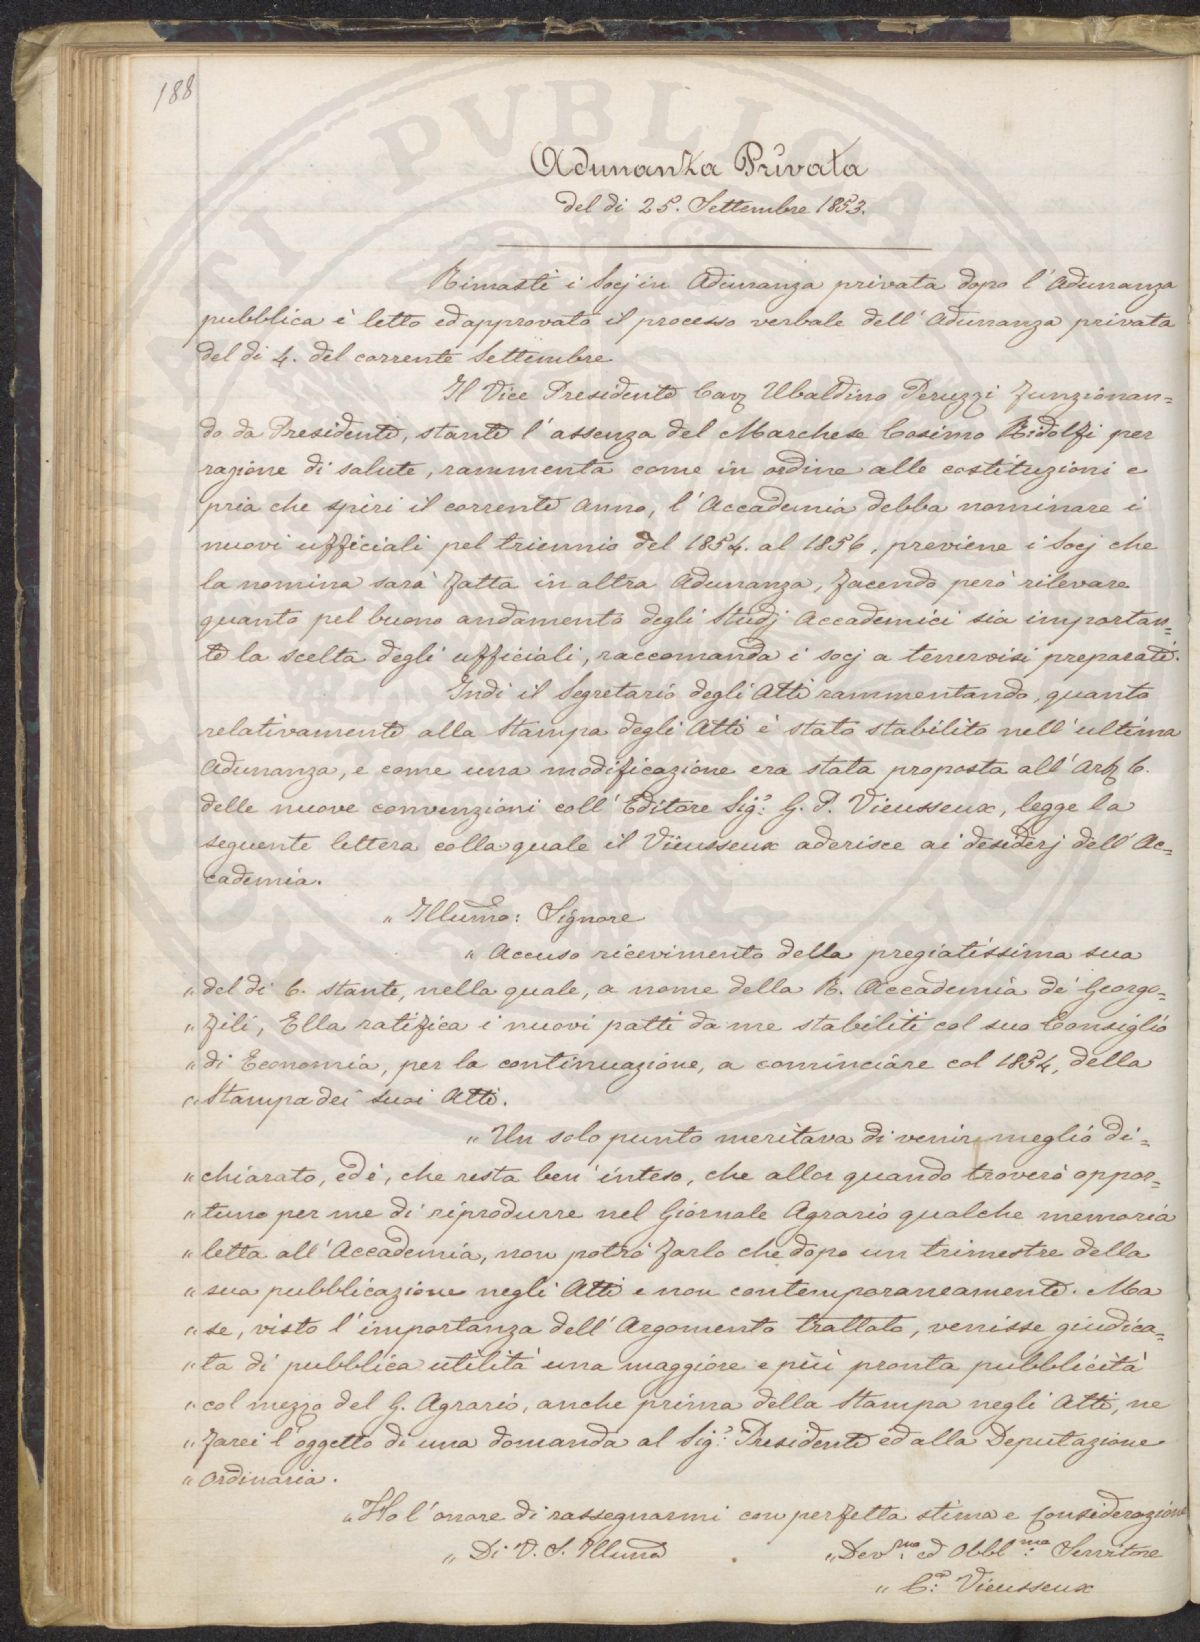 188
Adunanza Privata
del dì 25. Settembre 1853.
Rimasti i Socj in Adunanza privata dopo l'Adunanza
pubblica è letto ed approvato il processo verbale dell'Adunanza privata
del dì 4. del corrente Settembre
Il Vice Presidente Cav Ubaldino Peruzzi funzionan=
do da Presidente, stante l'assenza del Marchese Cosimo Ridolfi per
ragione di salute, rammenta come in ordine alle costituzioni e
pria che spiri il corrente Anno, l'Accademia debba nominare i
nuovi ufficiali pel triennio del 1854. al 1856, previene i Socj che
la nomina sarà fatta in altra Adunanza, facendo però rilevare
quanto pel buono andamento degli Studj Accademici sia importan=
te la scelta degli ufficiali, raccomanda i socj a tenervisi preparati.
Indi il Segretario degli Atti rammentando, quanto
relativamente alla Stampa degli Atti è stato stabilito nell'ultima
Adunanza, e come una modificazione era stata proposta all'Art 6.
delle nuove convenzioni coll'Editore Sig.e G. P. Vieusseux, legge la
seguente lettera colla quale il Vieusseux aderisce ai desiderj dell'Ac=
cademia.
" Illumo: Signore
" Accuso ricevimento della pregiatissima sua
" del dì 6. stante, nella quale, a nome della R. Accademia de' Georgo=
" fili, Ella ratifica i nuovi patti da me stabiliti col suo Consiglio
" di Economia, per la continuazione, a cominciare col 1854, della
" Stampa dei suoi Atti.
" Un solo punto meritava di venir meglio di=
" chiarato, ed è, che resta ben'inteso, che allor quando troverò oppor=
" tuno per me di riprodurre nel Giornale Agrario qualche memoria
" letta all'Accademia, non potrò farlo che dopo un trimestre della
" sua pubblicazione negli Atti e non contemporaneamente. Ma
" se, visto l'importanza dell'Argomento trattato, venisse giudica=
" ta di pubblica utilità una maggiore e più pronta pubblicità
" col mezzo del G. Agrario, anche prima della Stampa negli Atti, ne
" farei l'oggetto di una domanda al Sig.e Presidente ed alla Deputazione
" Ordinaria.
" Ho l'onore di rassegnarmi con perfetta stima e Considerazione
" Di V. S. Illuma " Dev.mo ed Obbl.mo Servitore
" Vieusseux